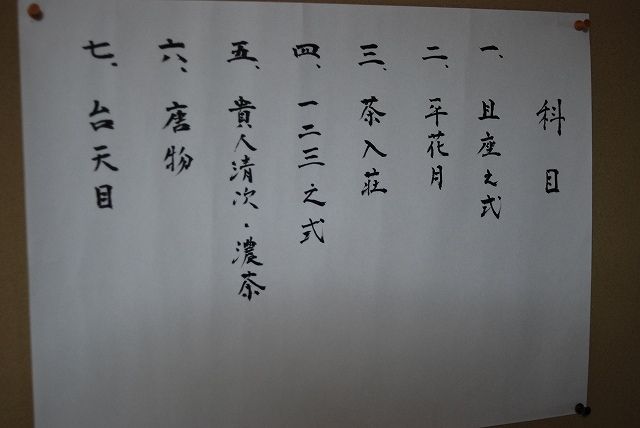 科目
一、且座之式
二、平花月
三、茶入荘
四、一二三之式
五、貴人清次・濃茶
六、唐物
七、台天目